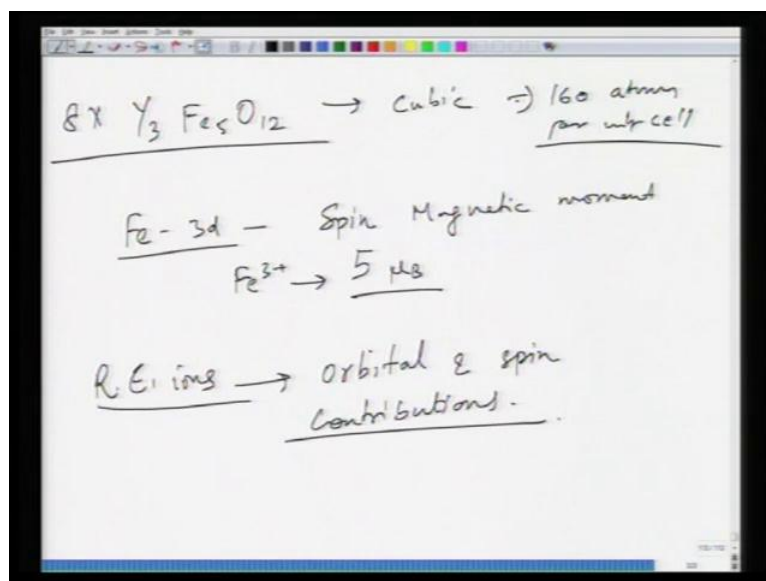 8x Y3 Fe5O12 → Cubic ⇒ 160 atoms
per unit cell
Fe - 3d - Spin Magnetic moment
Fe3+ → 5 μB
R.E. ions → orbital & spin
contributions.